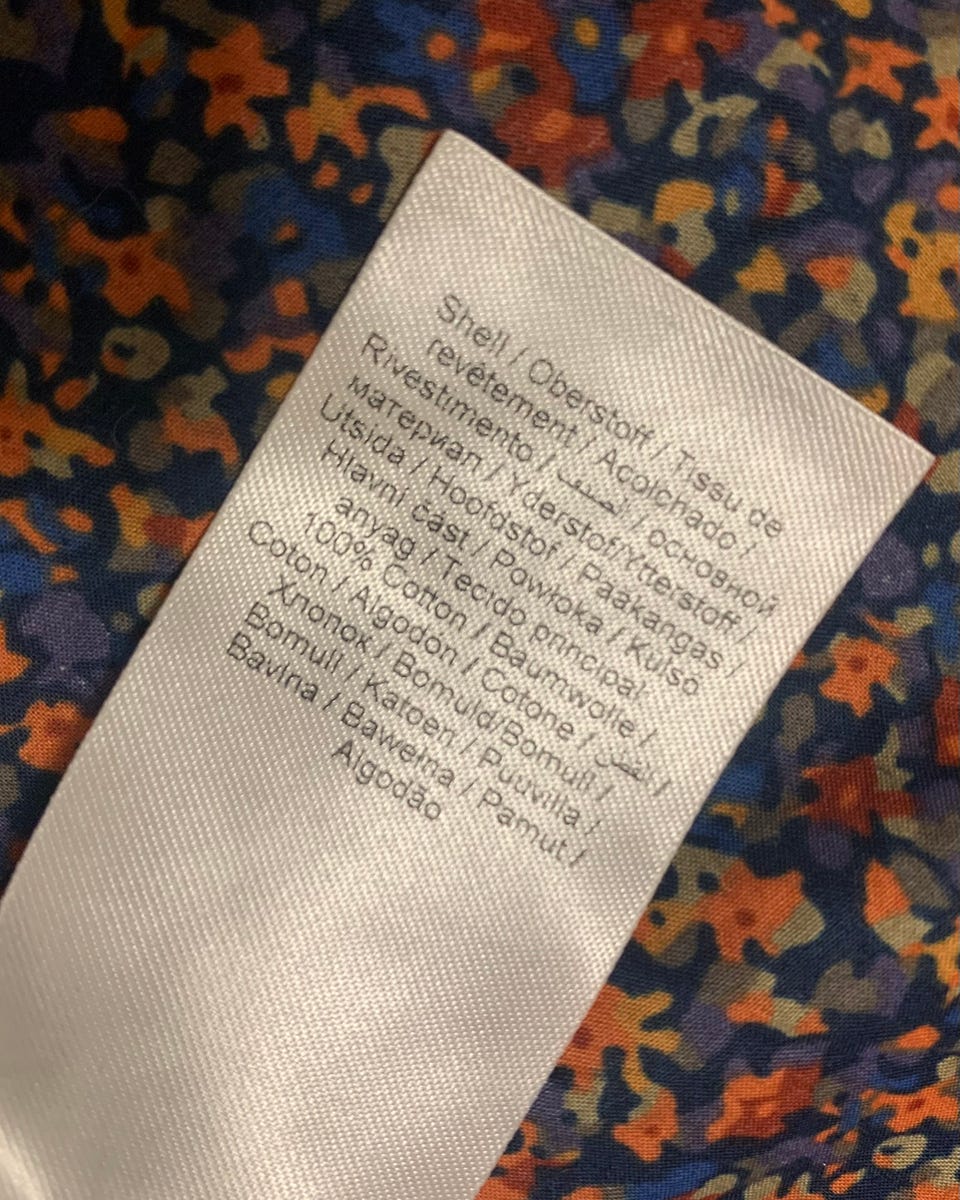 Shell / Oberstoff / Tissu de
revêtement / Acolchado /
Rivestimento / / основной
материал / Yderstof/Ytterstoff /
Utsida / Hoofdstof / Paakangas /
Hlavní část / Powłoka / Külső
anyag / Tecido principal:
100% Cotton / Baumwolle /
Coton / Algodón / Cotone / /
Хлопок / Bomuld/Bomull /
Bomull / Katoen / Puuvilla /
Bavlna / Bawełna / Pamut /
Algodão